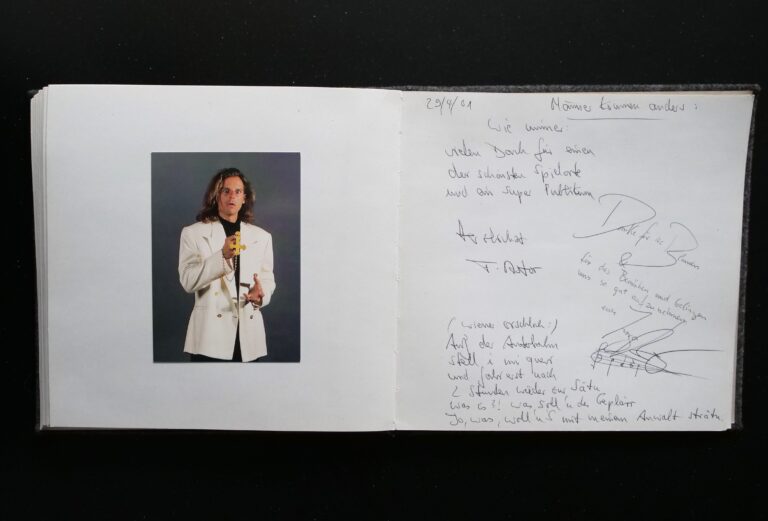 29/9/01 Männer können anders:
Wie immer:
vielen Dank für einen
der schönsten Spielorte
und ein super Publikum
(wiener
Auf der Autobahn
stell i mi quer
und fahr erst nach
2 Stunden wieder zur Sätn
was is?! was soll'n des Geplärr
Jo, was, woll'n S mit meinem Anwalt strätn
Danke für die Blumen
&
für das Bemühen und Gelingen
uns so gut aufzunehmen